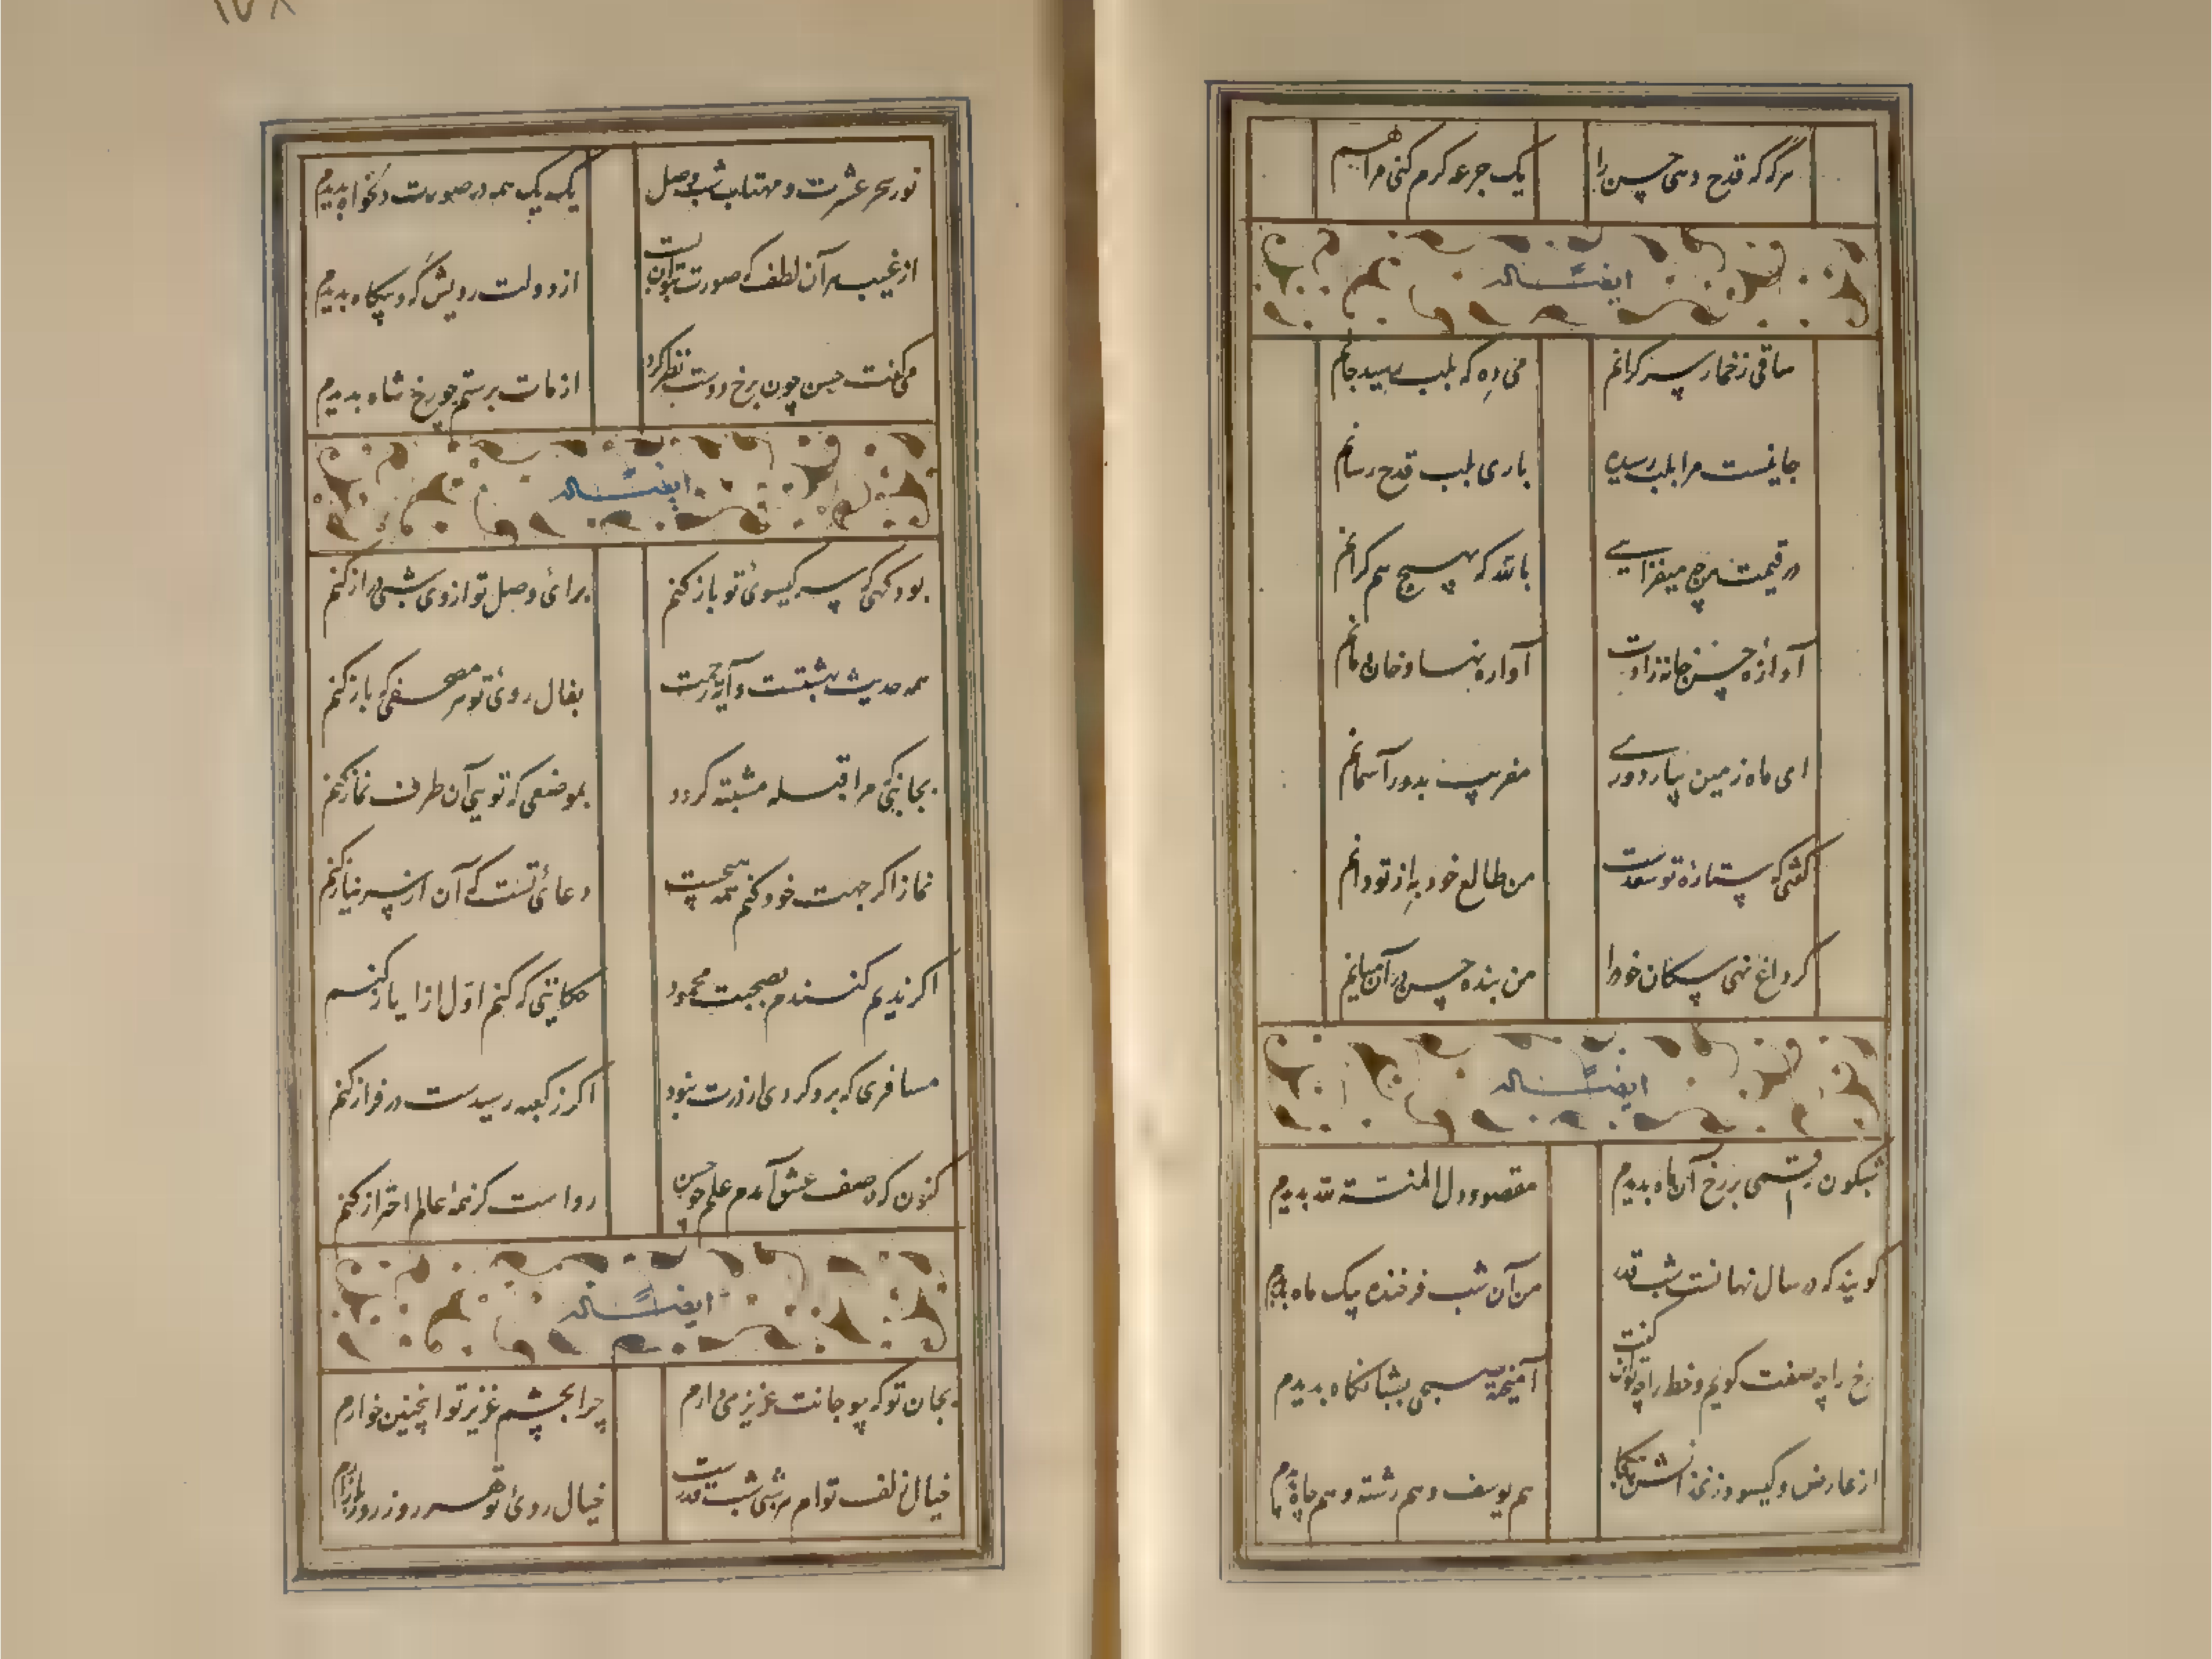 هرگه که قدح دهی حسن را
یک جرعه کرم کنی مرا هم
ایضاً له
ساقی ز خمار سر گرانم
می ده که بلب رسید جانم
جانیست مرا بلب رسیده
باری بلب قدح رسانم
در قیمت هرچه میفزایی
بالله که بهیچ هم گرانم
آوازه حسن خانه زادت
آواره بنساو خان مانم
ای ماه زمین بیار دوری
مفریب بدور آسمانم
گفتی که ستارهٔ تو سعدست
من طالع خود به از تو دانم
گر داغ نهی سگان خود را
من بنده حسن در آن میانم
ایضاً له
شبگون رقمی بر رخ آن ماه بدیدم
مقصود دل المنة لله بدیدم
گویند که در سال نهانست شب قدر
من آن شب فرخنده بیک ماه بدیدم
رخ را چه صفت گویم و خط را چه توان گفت
آمیخته صبحی بشبانگاه بدیدم
از عارض و گیسو و زنخدانش
هم یوسف و هم رشته و هم چاه بدیدم
۱۷۸
نور سحر عشرت و مهتاب شب وصل
یک یک همه در صورت دلخواه بدیدم
از غیب هر آن لطف که صورت نتوان بست
از دولت رویش گه و بیگاه بدیدم
می گفت حسن چون برخ دوست نظر کرد
از مات برستم چو رخ شاه بدیدم
ایضاً له
بود گهی که سر گیسوئ تو باز کنم
برائ وصل تو از وی شبی دراز کنم
همه حدیث بهشتست و آیه رحمت
بفال روئ تو هر مصحفی که باز کنم
بجانبی که مرا قبله مشتبه گردد
بموضعی که تویی آن طرف نماز کنم
نماز اگر جهت خود کنم همه هیچست
دعائ تست که آن از سر نیاز کنم
اگر ندیم کنندم بصحبت محمود
حکایتی که کنم اول از ایاز کنم
مسافری که برو گردی از درت نبود
اگر ز کعبه رسیدست در فراز کنم
کنون که در صف عشق آمدم علم چو حسن
رواست کز همه عالم احتراز کنم
ایضاً له
بجان تو که چو جانت عزیز می دارم
چرا بچشم عزیز تو اینچنین خوارم
خیال زلف تو ام هر شبی شب قدرست
خیال روئ تو هر روز روز بازارم